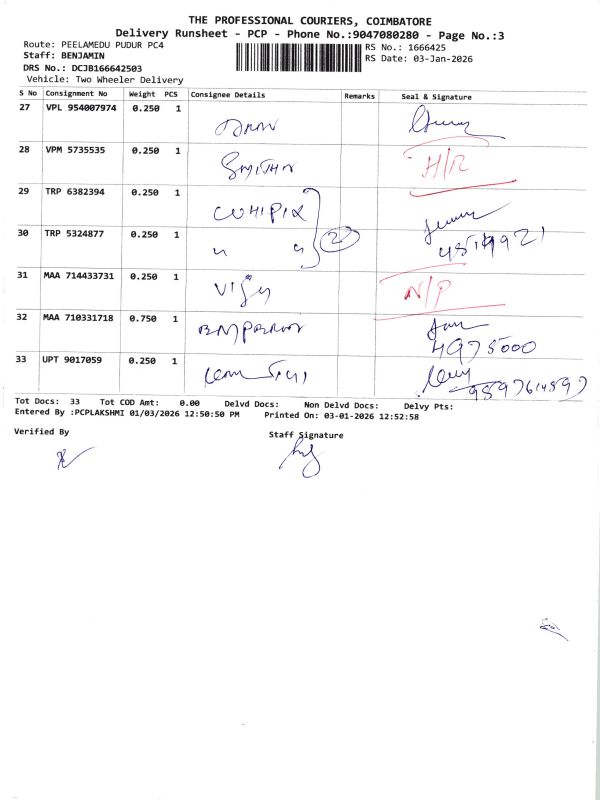 THE PROFESSIONAL COURIERS, COIMBATORE
Delivery Runsheet - PCP - Phone No.:9047080280 - Page No.:3
Route: PEELAMEDU PUDUR PC4
RS No.: 1666425
Staff: BENJAMIN
RS Date: 03-Jan-2026
DRS No.: DCJB166642503
Vehicle: Two Wheeler Delivery
S No Consignment No Weight PCS Consignee Details Remarks Seal & Signature
27 VPL 954007974 0.250 1
28 VPM 5735535 0.250 1 H/R
29 TRP 6382394 0.250 1
30 TRP 5324877 0.250 1 2
31 MAA 714433731 0.250 1 Vijay N/P
32 MAA 710331718 0.750 1
4975000
33 UPT 9017059 0.250 1
Tot Docs: 33 Tot COD Amt: 0.00 Delvd Docs: Non Delvd Docs: Delvy Pts:
Entered By :PCPLAKSHMI 01/03/2026 12:50:50 PM Printed On: 03-01-2026 12:52:58
Verified By Staff Signature